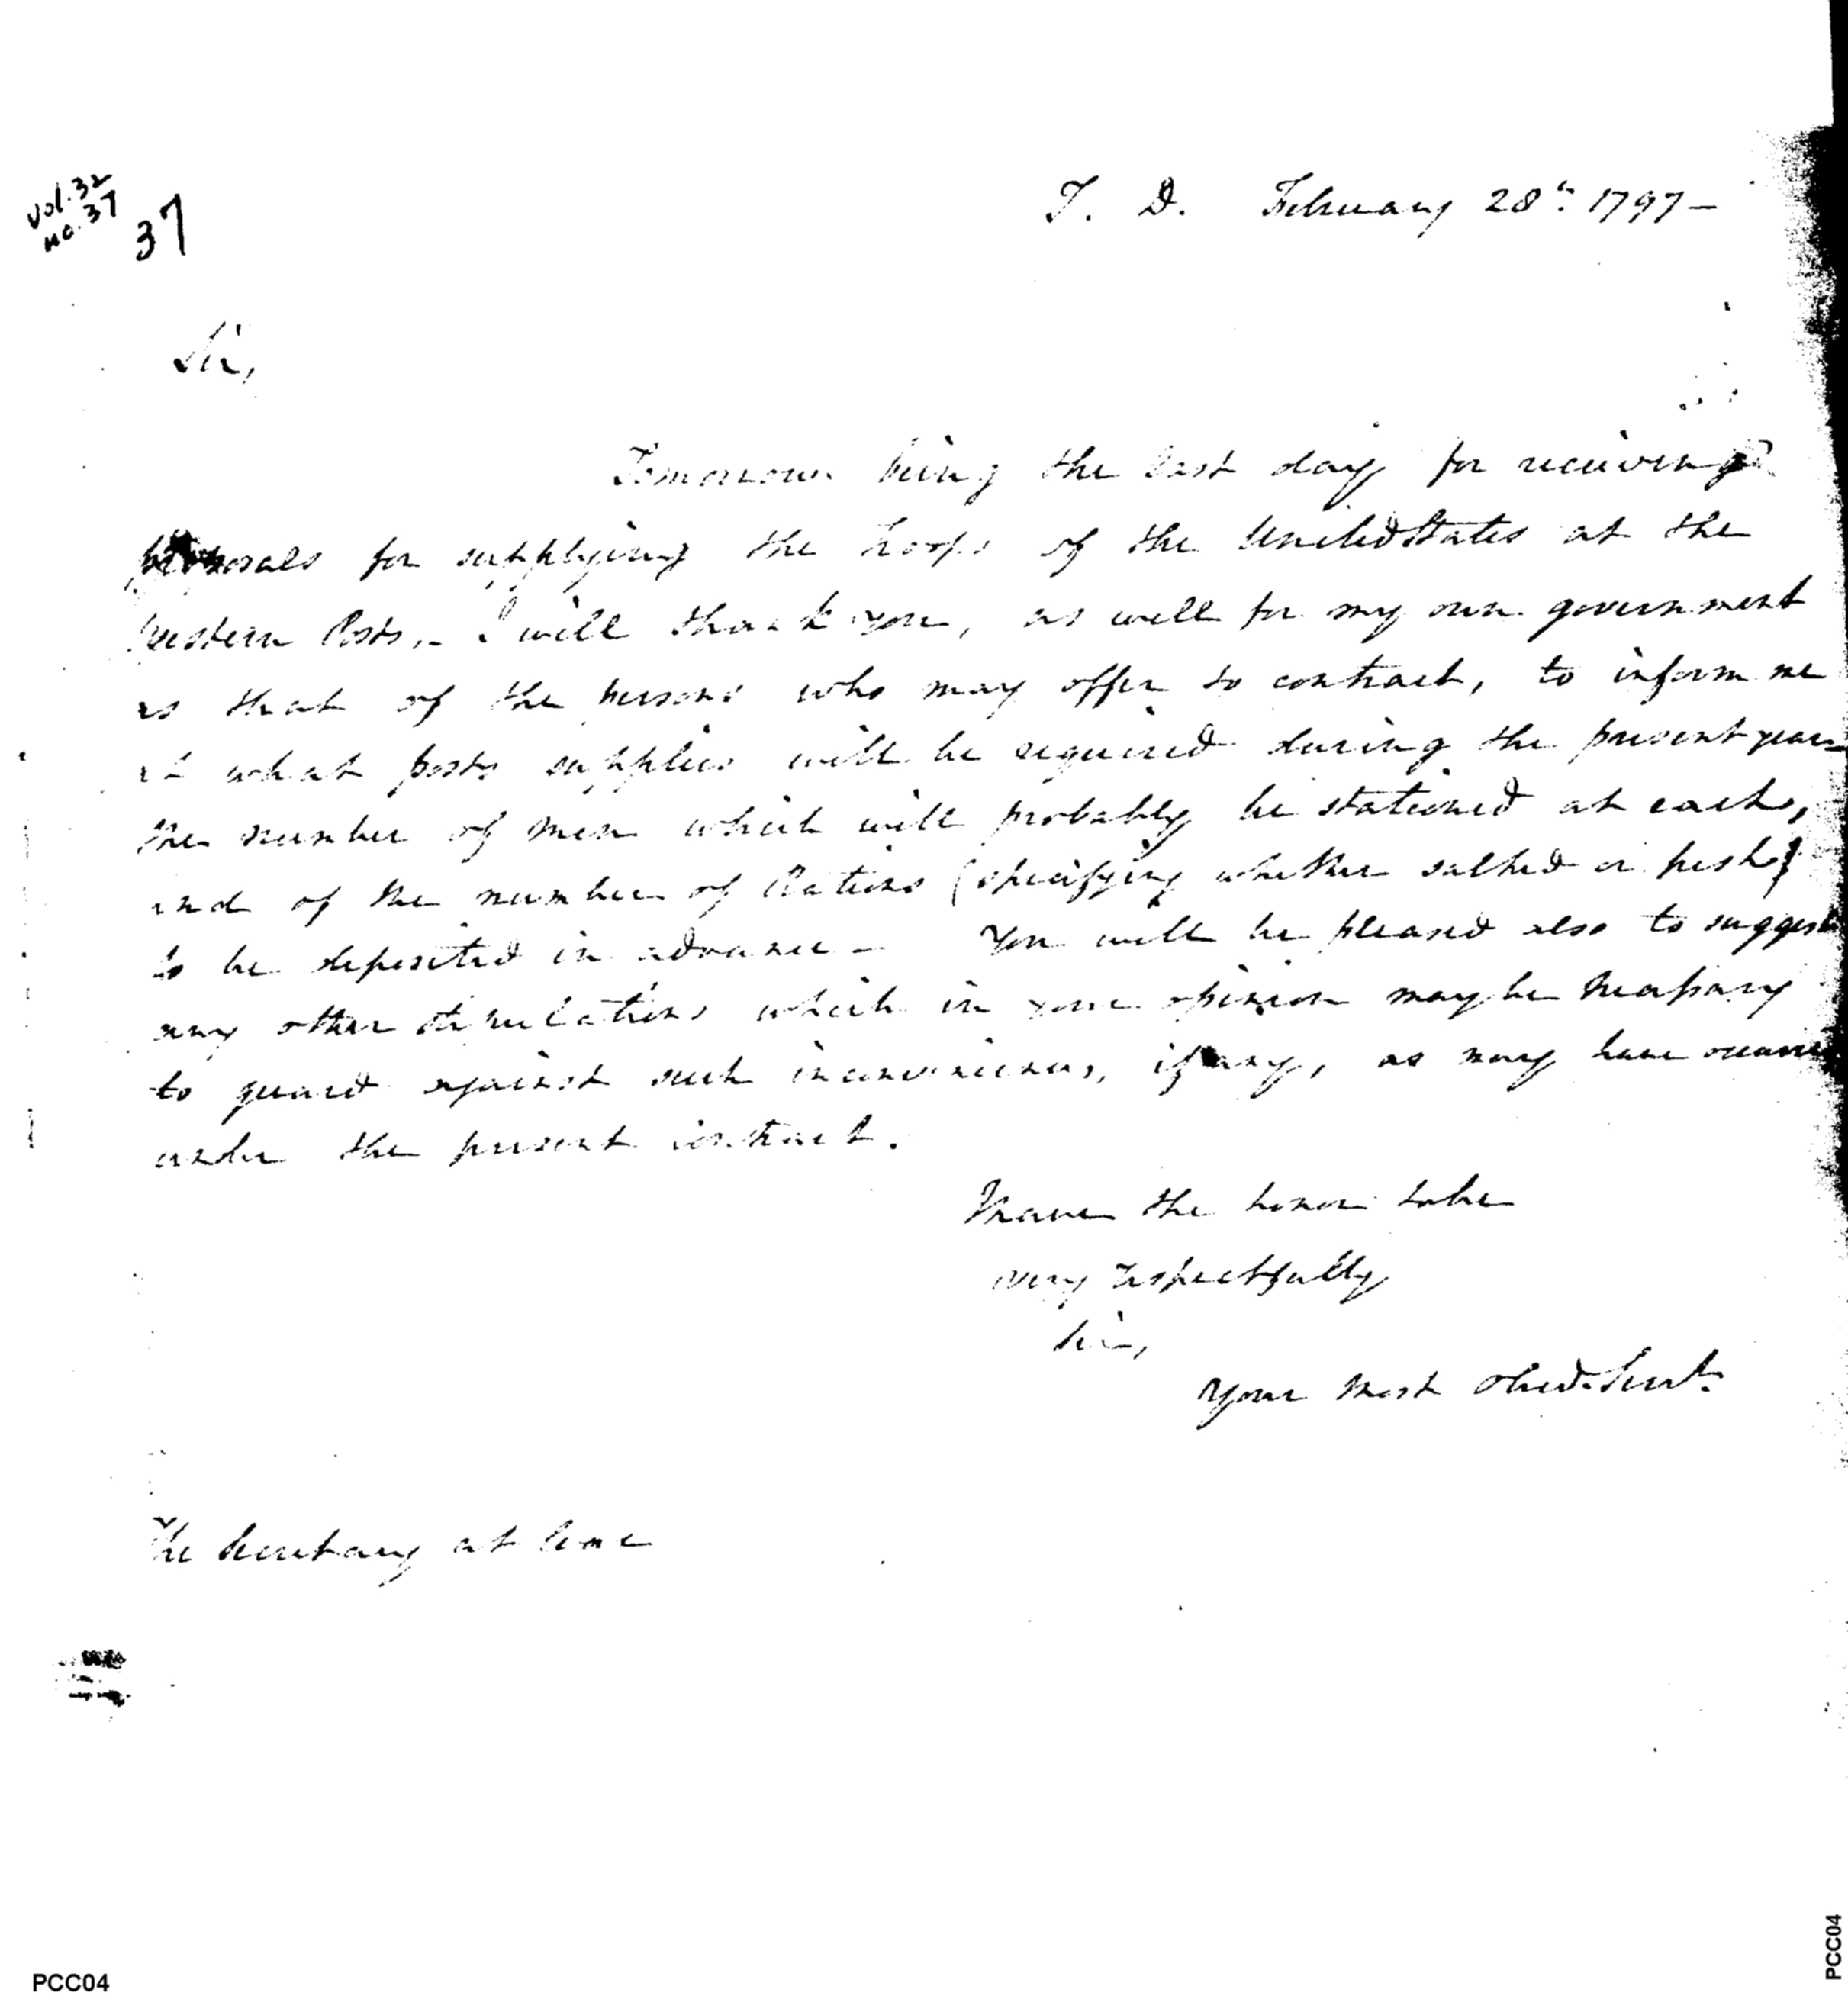 Vol. 32
No. 37
37
T. D. February 28th 1797 —
Sir,
Tomorrow being the last day for receiving
proposals for supplying the troops of the United States at the
Western Posts, - I will thank you, as well for my own government
as that of the persons who may offer to contract, to inform me
at what posts supplies will be required during the present year
the number of men which will probably be stationed at each,
and of the number of Rations (specifying whether salted or fresh)
to be deposited in advance — You will be pleased also to suggest
any other stipulations which in your opinion may be necessary
to guard against such inconveniences, if any, as may have occurred
under the present contract.
I have the honor to be
very respectfully
Sir,
Your most Obed. Servt.
The Secretary at War
PCC04
PCC04